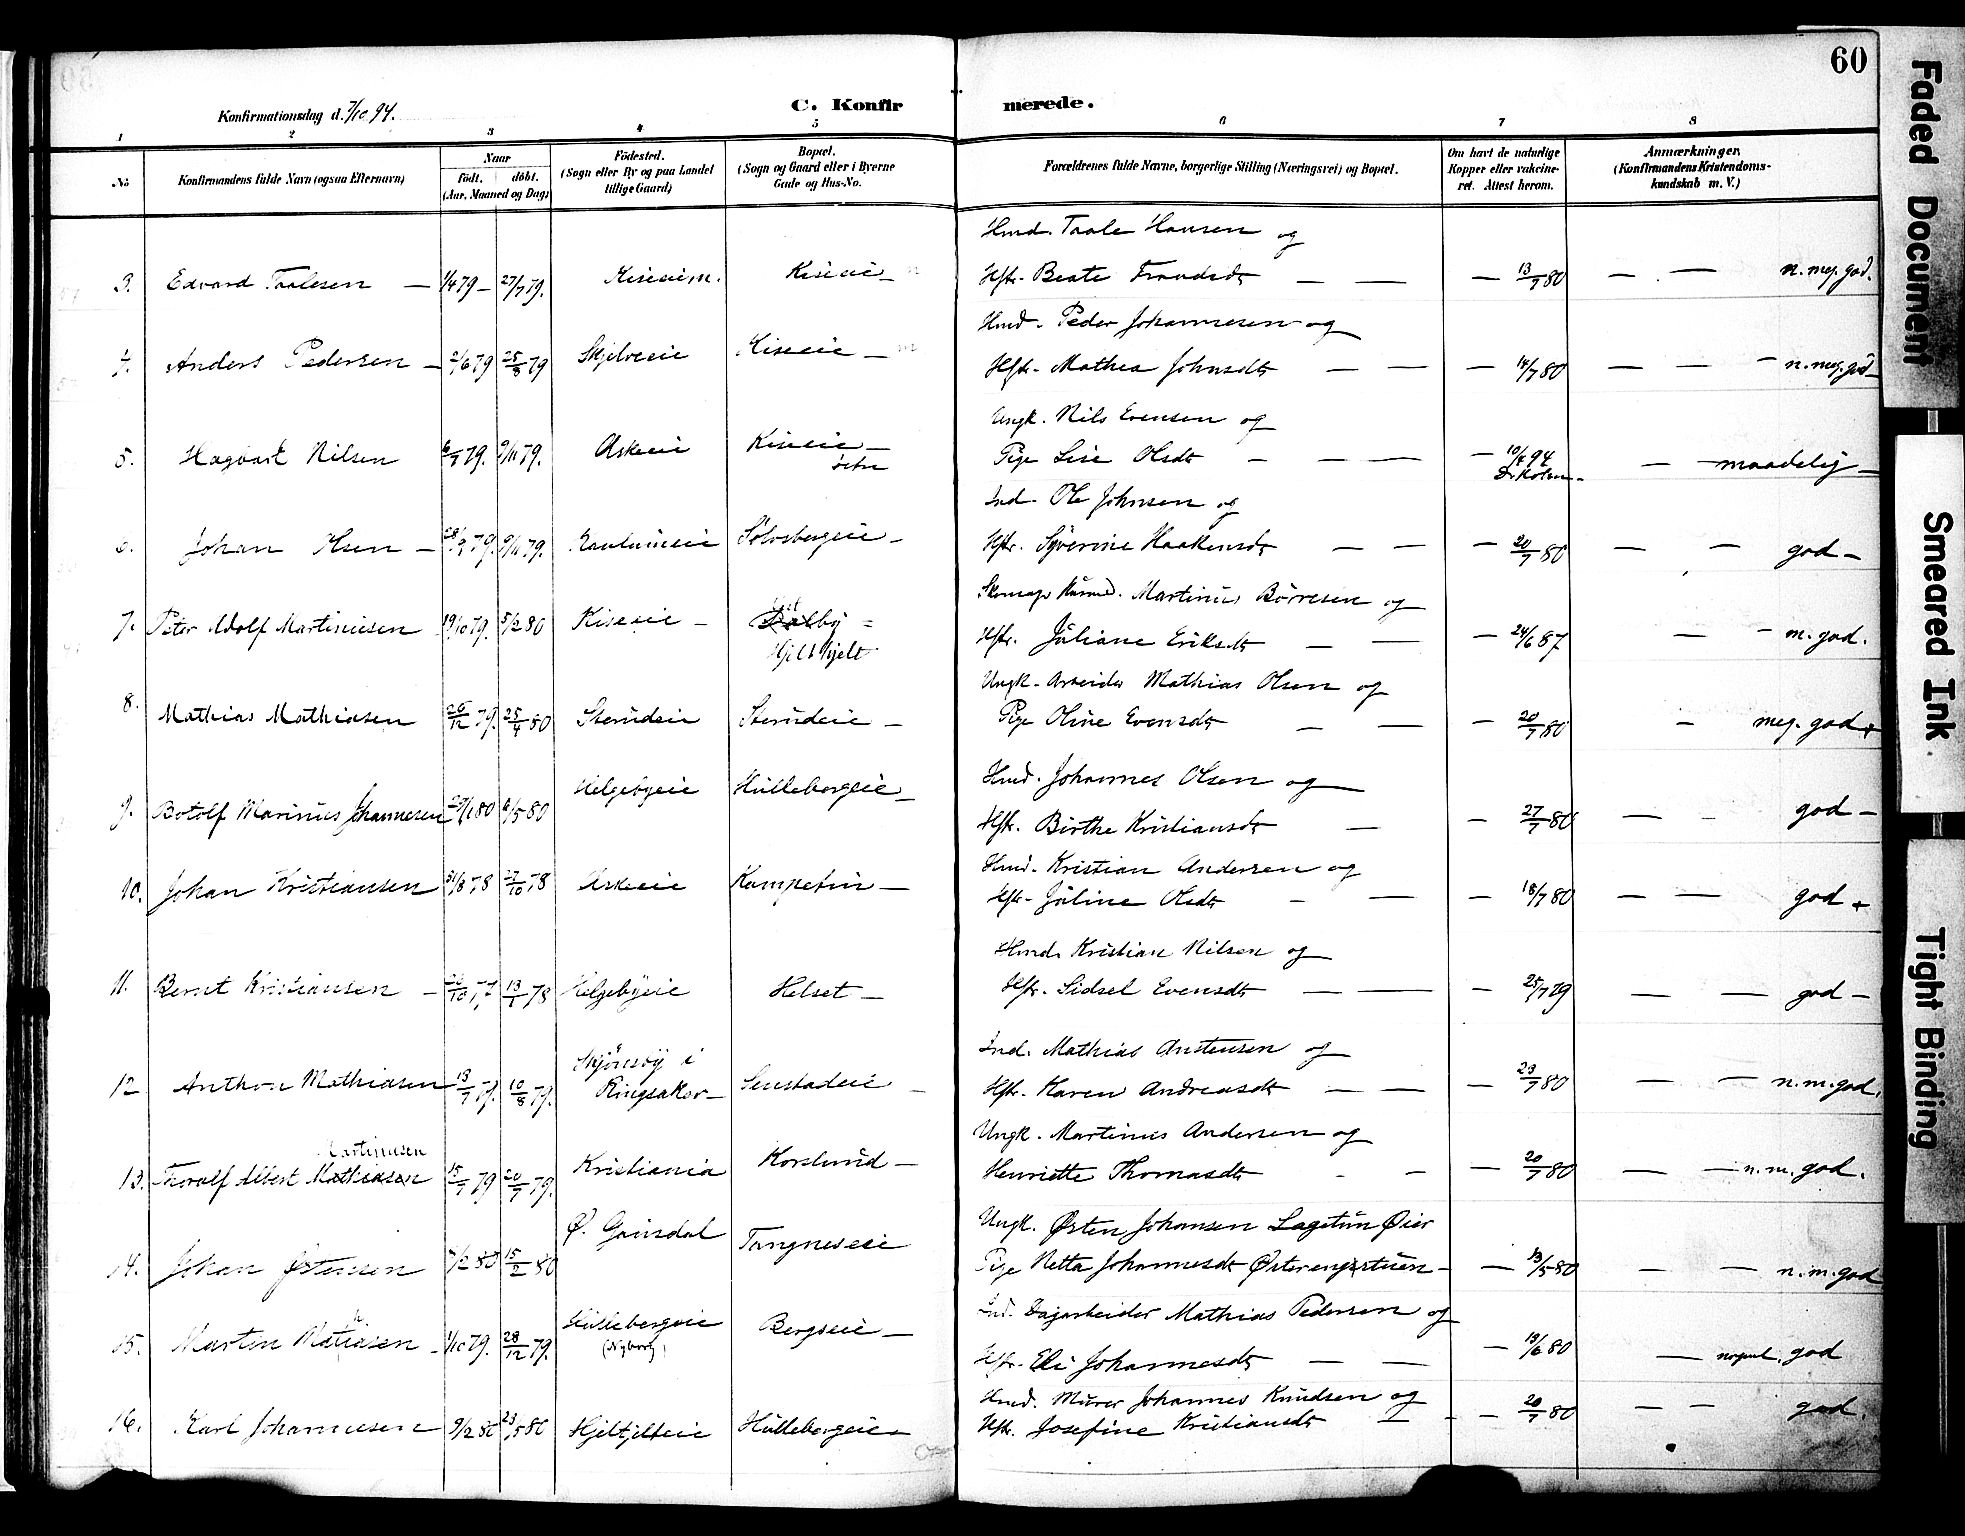 60
Konfirmationsdag d. 7/10 94.
C. Konfirmerede.
1 2 3 4 5 6 7 8
No
Konfirmandens fulde Navn (ogsaa Efternavn)
Naar
født. døbt.
(Aar, Maaned og Dag)
Fødested.
(Sogn eller By og paa Landet
tillige Gaard)
Bopæl.
(Sogn og Gaard eller i Byerne
Gade og Hus-No.
Forældrenes fulde Navne, borgerlige Stilling (Næringsvei) og Bopæl.
Om havt de naturlige
Kopper eller vakcine-
ret. Attest herom.
Anmærkninger,
(Konfirmandens Kristendoms-
kundskab m. V.)
Hmd. Taale Hansen og
3. Edvard Taalesen — 1/4 79 — 27/7 79. Kiseeie m. Kiseeie — Hstr. Beate Frandsdt — — — 13/7 80 — — n. meg. god.
Hmd. Peder Johannesen og
4. Anders Pedersen — 2/6 79 25/8 79 Skjelveeie Kiseeie — Hstr. Mathea Johnsdt — — — 14/7 80 — — — n. meg. god —
Ungk. Nils Evensen og
5. Hagbart Nilsen 6/7 79. 9/11 79. Askeeie Kiseeie — Pige Lise Olsdt — — — — 10/4 94 — — maadelig —
Ind. Ole Johnsen og
6. Johan Olsen — 28/9 79. 9/11 79. Solvsbergeie — Hstr. Syverine Haakensdt — — — 20/7 80 — — god —
Martinus Børresen og
7. Peter Adolf Martiniusen 19/10 79. 5/2 80 Kiseeie — Dalby Hstr. Juliane Eriksdt — — — 24/6 87 — — m. god.
Hjelthjelt
Ungk. Arbeider Mathias Olsen og
8. Mathias Mathiasen 26/12 79. 25/4 80 Sterudeie Sterudeie — Pige Oline Evensdt — — — 20/7 80 — meg. god +
Hmd. Johannes Olsen og
9. Botolf Marinius Johannesen 29/1 80 6/5 80 Helgebyeie Hullebergeie — Hstr. Birthe Kristiansdt — — 27/7 80 — — god —
Hmd. Kristian Andersen og
10. Johan Kristiansen 31/8 78 27/10 78 Askeeie — Hstr. Juline Olsdt — — — 18/7 80 — — god +
Hmd. Kristian Nilsen og
11. Bernt Kristiansen — 26/10 77 13/1 78 Helgebyeie Helset — Hstr. Sidsel Evensdt — — — 25/7 79 — — god —
Ind. Mathias Austensen og
12 Anthon Mathiasen 13/7 79. 10/8 79. i Ringsaker — Senstadeie — Hstr. Karen Andreasdt — — — 23/7 80 — — n. m. god.
Ungk. Martinus Andersen og
Martiniusen
13. Thoralf Albert Mathiasen 15/7 79 20/7 79. Kristiania Korslund — Henriette Thomasdt — — — 20/7 80 — — n. m. god.
Ungk. Østen Johansen Lagetun Øier
14. Johan Østensen 7/2 80 15/2 80 Ø. Gausdal Tangneseie Pige Netta Johannesdt Østerengstuen — — 13/5 80 — — n. m. god
Ind. Dagarbeider Mathias Pedersen og
15. Marten Mathiasen — 1/10 79. 28/12 79. Hullebergeie Bergseie — Hstr. Eli Johannesdt — — — 19/6 80 — god
(Nyborg)
Hmd. Murer Johannes Knudsen og
16. Karl Johannesen 9/2 80 23/5 80 Hjeltjelteie Hullebergeie — Hstr. Josefine Kristiansdt — — — 20/7 80 — — god.
Faded Document
Smeared Ink
Tight Binding